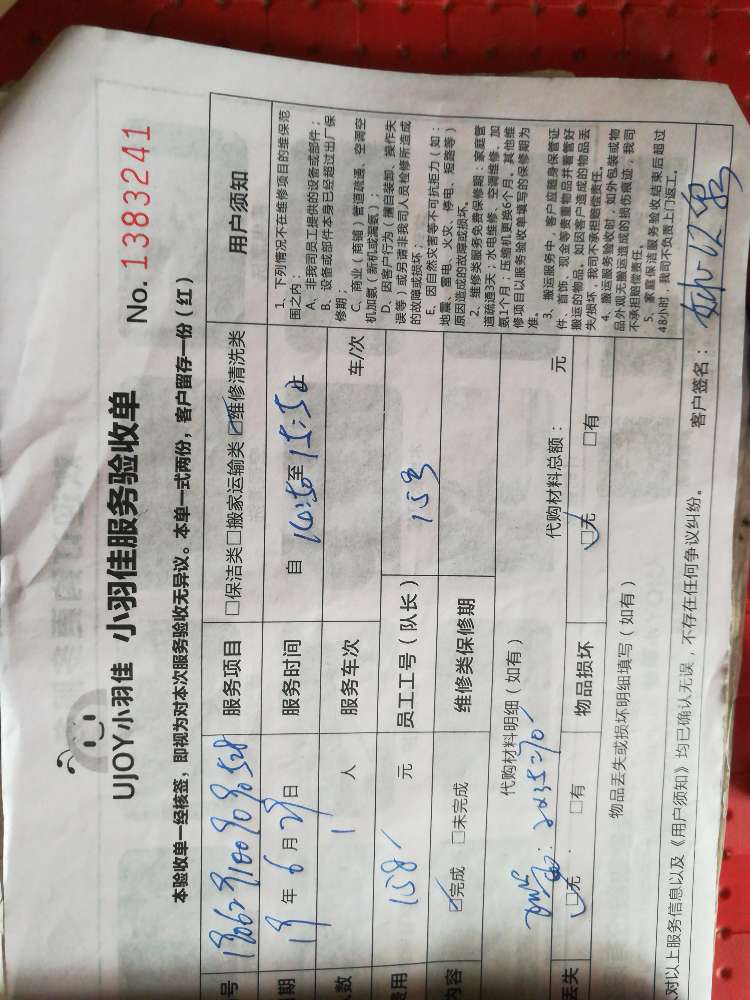 UJOY小羽佳 小羽佳服务验收单
No. 1383241
本验收单一经核签，即视为对本次服务验收无异议。本单一式两份，客户留存一份（红）
号
服务项目 □保洁类□搬家运输类☑维修清洗类
期 19年6月29日 服务时间 自 14:50 至 15:50 止
数 1 人 服务车次 车/次
费用 158 元 员工工号（队长） 153
内容 ☑完成 □未完成 维修类保修期
代购材料明细（如有） 代购材料总额： 元
2×35=70
丢失 ☑无 □有 物品损坏 ☑无 □有
物品丢失或损坏明细填写（如有）
用户须知
1、下列情况不在维修项目的维保范
围之内：
A、非我司员工提供的设备或部件；
B、设备或部件本身已经超过出厂保
修期；
C、商业（商铺）管道疏通、空调空
机加氨（新机或漏氨）；
D、因客户行为（擅自装卸、操作失
误等）或另请非我司人员检修所造成
的故障或损坏；
E、因自然灾害等不可抗拒力（如：
地震、雷电、火灾、停电、短路等）
原因造成的故障或损坏。
2、维修类服务免费保修期：家庭管
道疏通3天；水电维修、空调维修、加
氨1个月；压缩机更换6个月。其他维
修项目以服务验收单填写的保修期为
准。
3、搬运服务中，客户应随身保管证
件、首饰、现金等贵重物品并看管好
搬运的物品，如因客户造成的物品丢
失/损坏，我司不承担赔偿责任。
4、搬运服务验收时，如外包装或物
品外观无搬运造成的损伤痕迹，我司
不承担赔偿责任。
5、家庭保洁服务验收结束后超过
48小时，我司不负责上门返工。
对以上服务信息以及《用户须知》均已确认无误，不存在任何争议纠纷。 客户签名：